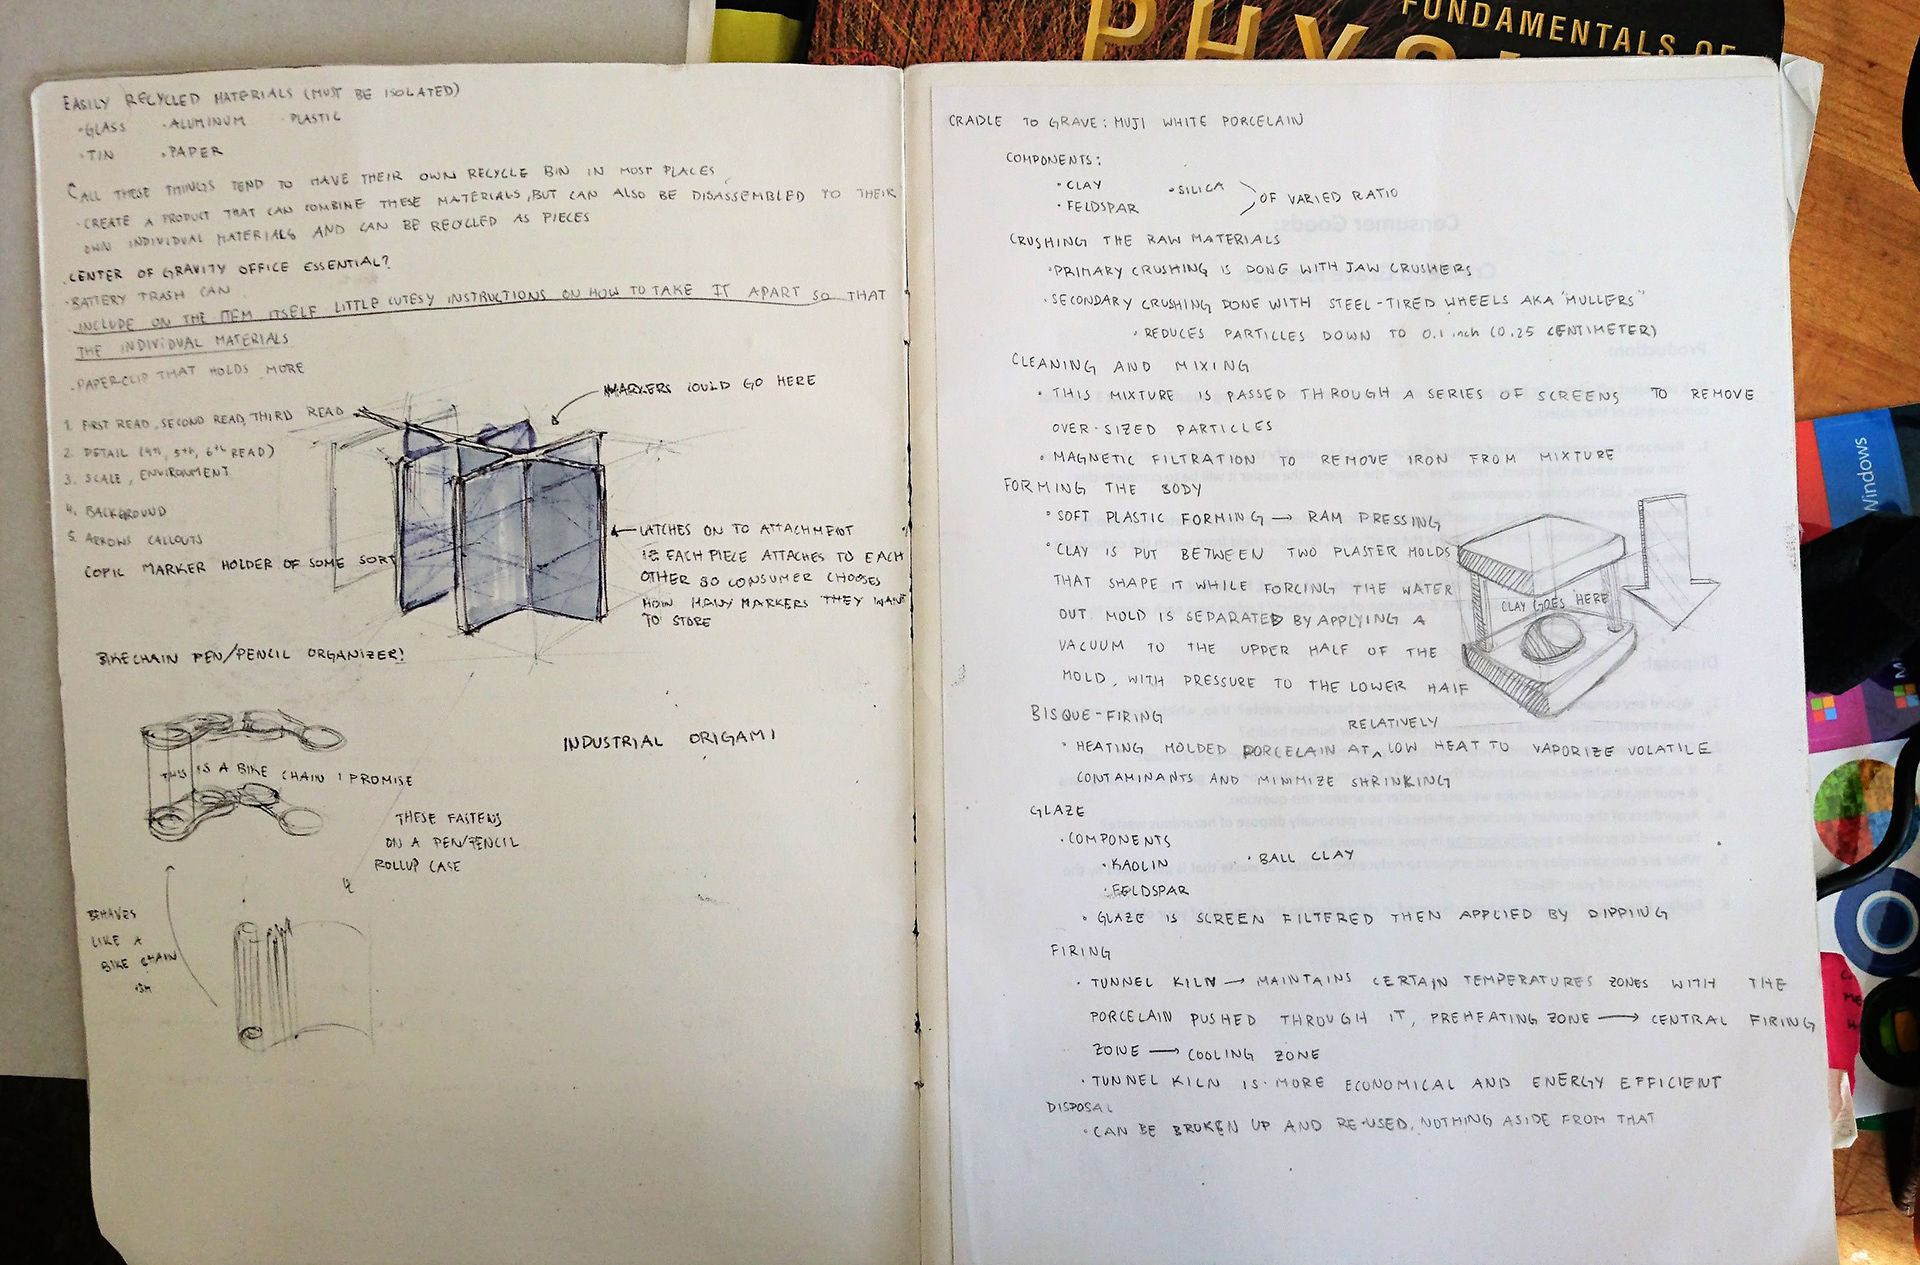 FUNDAMENTALS OF
PHYSI
EASILY RECYCLED MATERIALS (MUST BE ISOLATED)
·GLASS ·ALUMINUM ·PLASTIC
·TIN ·PAPER
CALL THESE THINGS TEND TO HAVE THEIR OWN RECYCLE BIN IN MOST PLACES
·CREATE A PRODUCT THAT CAN COMBINE THESE MATERIALS, BUT CAN ALSO BE DISASSEMBLED TO THEIR
OWN INDIVIDUAL MATERIALS AND CAN BE RECYCLED AS PIECES
·CENTER OF GRAVITY OFFICE ESSENTIAL?
·BATTERY TRASH CAN
·INCLUDE ON THE ITEM ITSELF LITTLE CUTESY INSTRUCTIONS ON HOW TO TAKE IT APART SO THAT
THE INDIVIDUAL MATERIALS
·PAPERCLIP THAT HOLDS MORE
MARKERS COULD GO HERE
1. FIRST READ, SECOND READ, THIRD READ
2. DETAIL (4th, 5th, 6th READ)
3. SCALE, ENVIRONMENT
4. BACKGROUND
5. ARROWS CALLOUTS
COPIC MARKER HOLDER OF SOME SORT
LATCHES ON TO ATTACHMENT
EACH PIECE ATTACHES TO EACH
OTHER SO CONSUMER CHOOSES
HOW MANY MARKERS THEY WANT
TO STORE
BIKECHAIN PEN/PENCIL ORGANIZER!
INDUSTRIAL ORIGAMI
THIS IS A BIKE CHAIN I PROMISE
THESE FASTENS
ON A PEN/PENCIL
ROLLUP CASE
BEHAVES
LIKE A
BIKE CHAIN
CRADLE TO GRAVE: MUJI WHITE PORCELAIN
COMPONENTS:
·CLAY ·SILICA
·FELDSPAR
OF VARIED RATIO
CRUSHING THE RAW MATERIALS
·PRIMARY CRUSHING IS DONG WITH JAW CRUSHERS
·SECONDARY CRUSHING DONE WITH STEEL-TIRED WHEELS AKA "MULLERS"
·REDUCES PARTICLES DOWN TO 0.1 inch (0.25 CENTIMETER)
CLEANING AND MIXING
·THIS MIXTURE IS PASSED THROUGH A SERIES OF SCREENS TO REMOVE
OVER-SIZED PARTICLES
·MAGNETIC FILTRATION TO REMOVE IRON FROM MIXTURE
FORMING THE BODY
·SOFT PLASTIC FORMING → RAM PRESSING
·CLAY IS PUT BETWEEN TWO PLASTER MOLDS
THAT SHAPE IT WHILE FORCING THE WATER
OUT. MOLD IS SEPARATED BY APPLYING A
VACUUM TO THE UPPER HALF OF THE
MOLD, WITH PRESSURE TO THE LOWER HALF
CLAY GOES HERE
BISQUE-FIRING
RELATIVELY
·HEATING MOLDED PORCELAIN AT ^ LOW HEAT TO VAPORIZE VOLATILE
CONTAMINANTS AND MINIMIZE SHRINKING
GLAZE
·COMPONENTS
·KAOLIN ·BALL CLAY
·FELDSPAR
·GLAZE IS SCREEN FILTERED THEN APPLIED BY DIPPING
FIRING
·TUNNEL KILN → MAINTAINS CERTAIN TEMPERATURES ZONES WITH THE
PORCELAIN PUSHED THROUGH IT, PREHEATING ZONE → CENTRAL FIRING
ZONE → COOLING ZONE
·TUNNEL KILN IS MORE ECONOMICAL AND ENERGY EFFICIENT
DISPOSAL
·CAN BE BROKEN UP AND RE-USED, NOTHING ASIDE FROM THAT
Windows